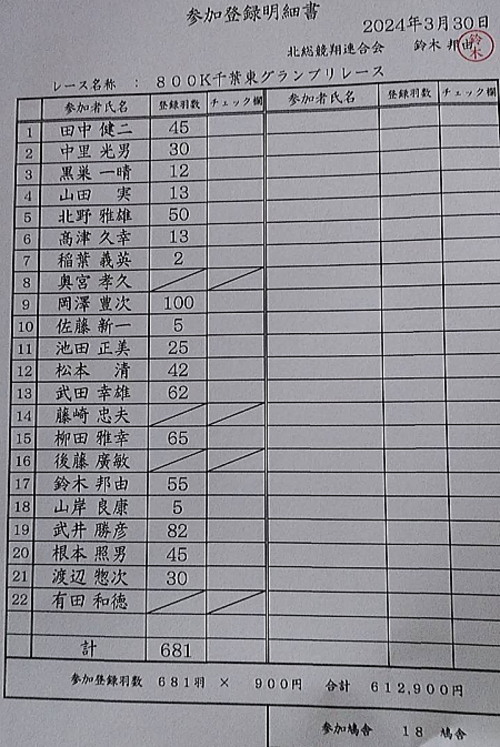 参加登録明細書
2024年3月30日
北総競翔連合会 鈴木 邦由
鈴木
レース名称 : 800K千葉東グランプリレース
参加者氏名 登録羽数 チェック欄 参加者氏名 登録羽数 チェック欄
1 田中 健二 45
2 中里 光男 30
3 黒巣 一晴 12
4 山田 実 13
5 北野 雅雄 50
6 高津 久幸 13
7 稲葉 義英 2
8 奥宮 孝久
9 岡澤 豊次 100
10 佐藤 新一 5
11 池田 正美 25
12 松本 清 42
13 武田 幸雄 62
14 藤崎 忠夫
15 柳田 雅幸 65
16 後藤 廣敏
17 鈴木 邦由 55
18 山岸 良康 5
19 武井 勝彦 82
20 根本 照男 45
21 渡辺 惣次 30
22 有田 和徳
計 681
参加登録羽数 681羽 × 900円 合計 612,900円
参加鳩舎 18 鳩舎